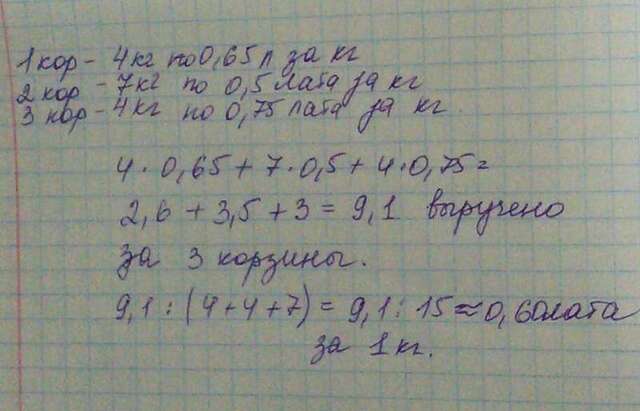 1 кор - 4 кг по 0,65 л за кг
2 кор - 7 кг по 0,5 лата за кг
3 кор - 4 кг по 0,75 лата за кг.
4 · 0,65 + 7 · 0,5 + 4 · 0,75 =
2,6 + 3,5 + 3 = 9,1 выручено
за 3 корзины.
9,1 : (4 + 4 + 7) = 9,1 : 15 ≈ 0,60 лата
за 1 кг.